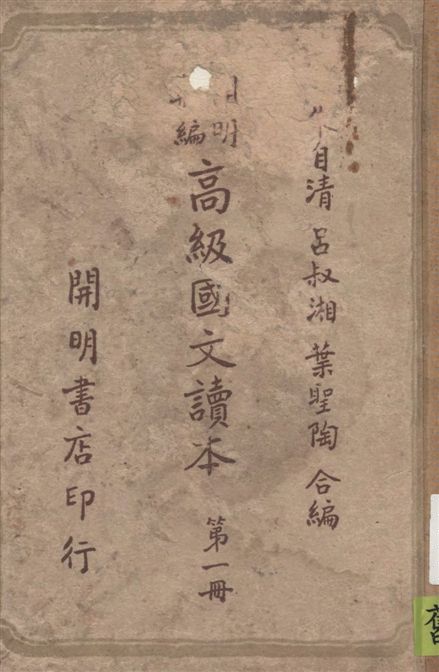 自清 呂叔湘 葉聖陶 合編
明
編
高級國文讀本 第一冊
開明書店印行
舊